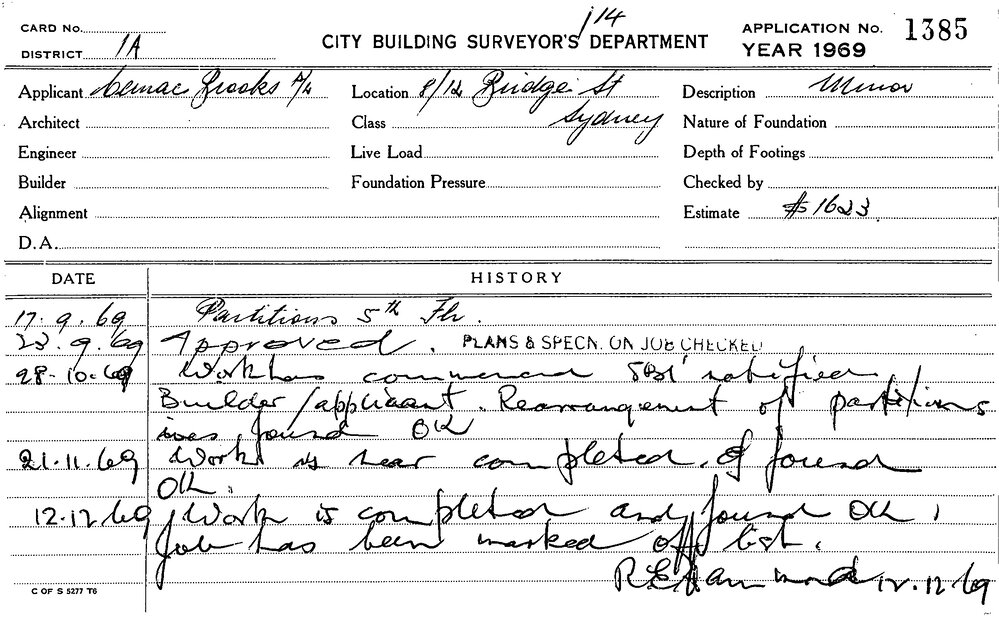 j14
CARD No.
DISTRICT 1A
CITY BUILDING SURVEYOR'S DEPARTMENT
APPLICATION No. 1385
YEAR 1969
Applicant Cemac Brooks P/L
Location 8/12 Bridge St
Sydney
Description Minor
Architect
Class
Nature of Foundation
Engineer
Live Load
Depth of Footings
Builder
Foundation Pressure
Checked by
Alignment
Estimate $1623
D.A.
DATE
HISTORY
17.9.69 Partitions 5th Flr.
23.9.69 Approved. PLANS & SPECN. ON JOB CHECKED
28.10.69 Work has commenced notified
Builder/applicant. Rearrangement of partitions
was found OK
21.11.69 Work is near completed. & found
OK.
12.12.69 Work is completed and found OK,
Job has been marked off list.
R.E. Hammond 12.12.69
C OF S 5277 T6